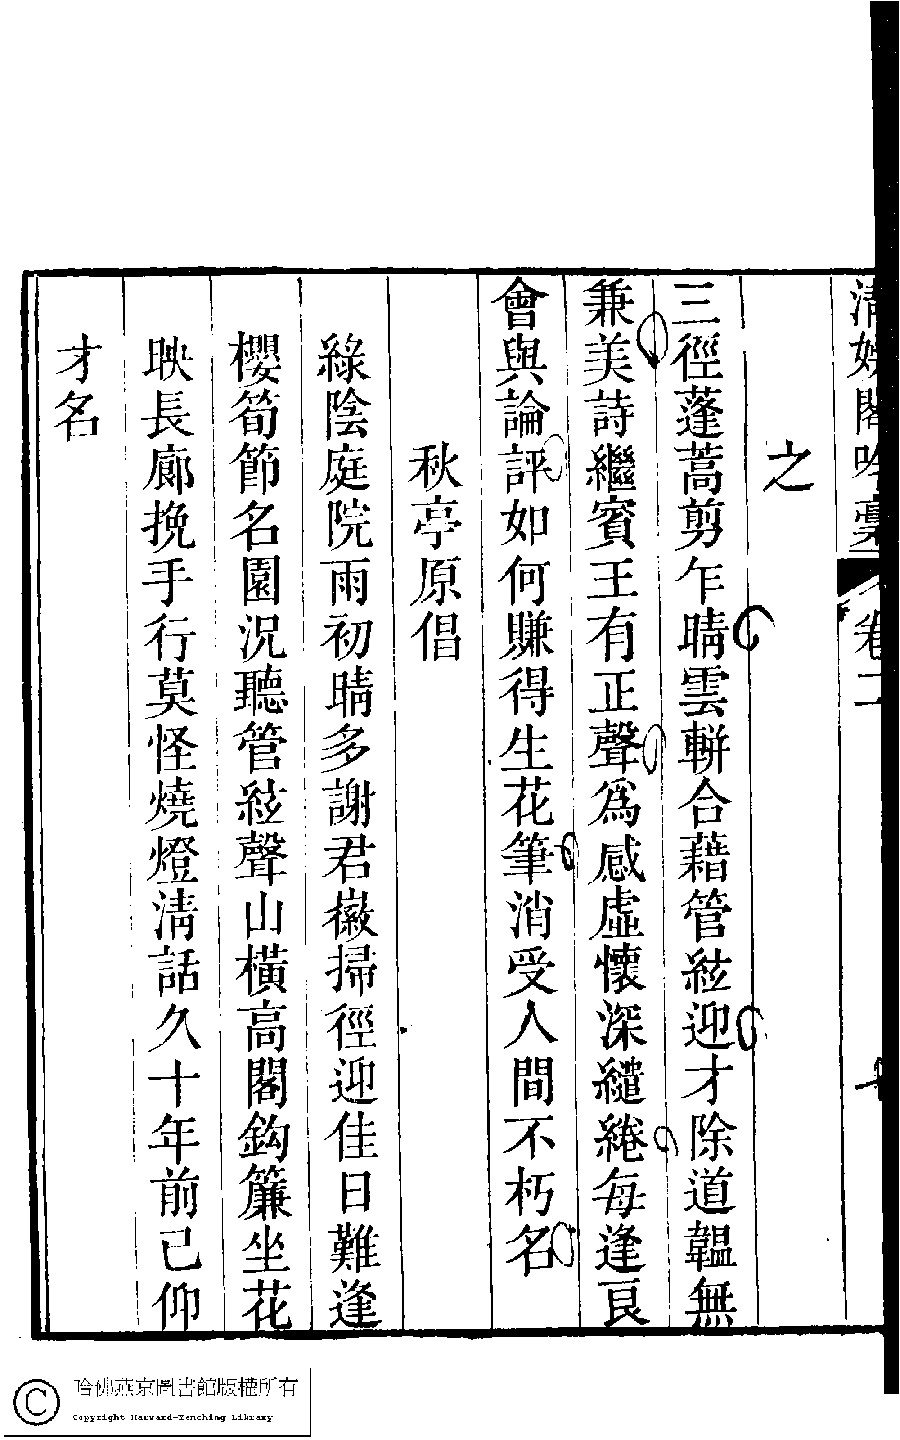 清娛閣吟藁 卷二
之
三徑蓬蒿剪乍晴雲軿合藉管絃迎才除道韞無
兼美詩繼賓王有正聲爲感虛懷深繾綣每逢良
會與論評如何賺得生花筆消受人間不朽名
秋亭原倡
綠陰庭院雨初晴多謝君徽掃徑迎佳日難逢
櫻筍節名園況聽管絃聲山橫高閣鈎簾坐花
映長廊挽手行莫怪燒燈淸話久十年前已仰
才名
哈佛燕京圖書館版權所有
Copyright Harvard-Yenching Library